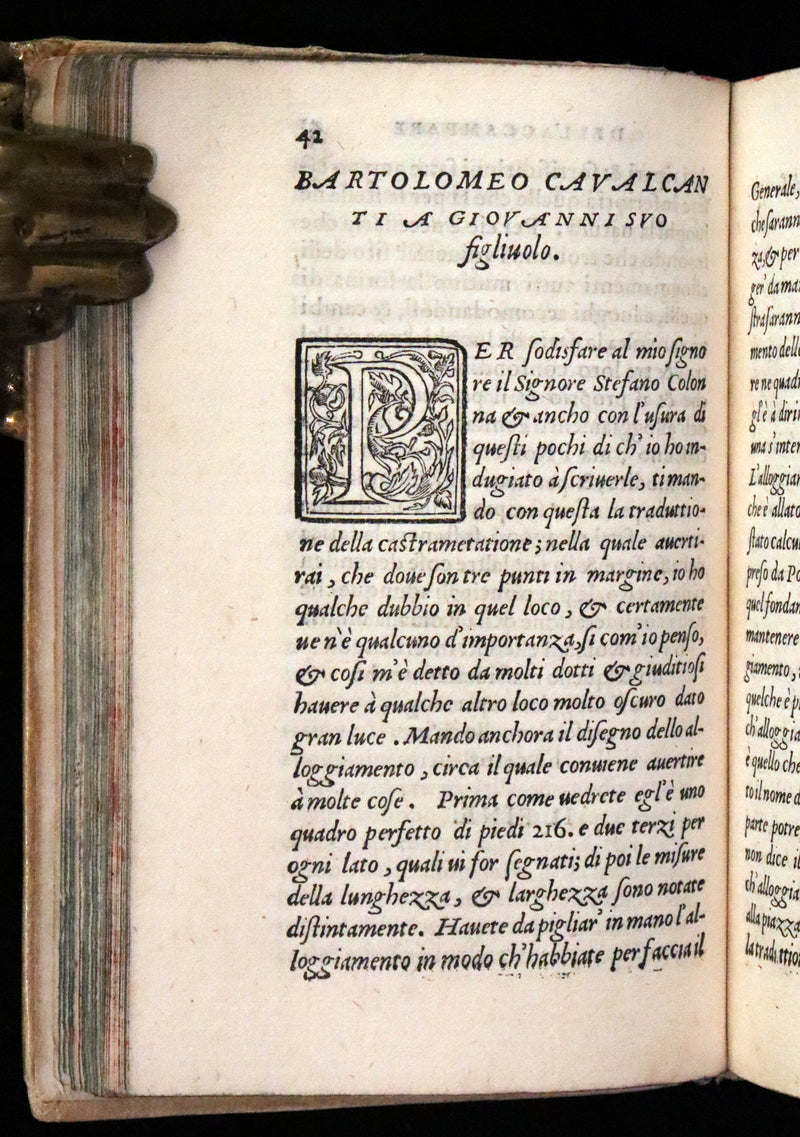 42
BARTOLOMEO CAVALCAN
TI A GIOVANNI SVO
figliuolo.
PER sodisfare al mio signo
re il Signore Stefano Colon
na & ancho con l'usura di
questi pochi di ch' io ho in-
dugiato à scriuerle, ti man-
do con questa la traduttio-
ne della castrametatione; nella quale auerti-
rai, che doue son tre punti in margine, io ho
qualche dubbio in quel loco, & certamente
ue n'è qualcuno d'importanza, si com' io penso,
& cosi m'è detto da molti dotti & giuditiosi
hauere à qualche altro loco molto oscuro dato
gran luce. Mando anchora il disegno dello al-
loggiamento, circa il quale conuiene auertire
à molte cose. Prima come uedrete egl'è uno
quadro perfetto di piedi 216. e due terzi per
ogni lato, quali ui for segnati; di poi le misure
della lunghezza, & larghezza sono notate
distintamente. Hauete da pigliar' in mano l'al-
loggiamento in modo ch'habbiate per faccia il
Generale,
che sarann
za, & per
ger' da ma
stra sarann
mento delle
re ne quadr
gl'è à diri
una s'inter
L'alloggiar
che è allato
stato calcu
preso da Po
quel fondan
mantenere
giamento,
quelche è p
ch'alloggia
è quello che
to il nome d
parte potre
non dice il
ch'alloggia
alla piazza
la traduttio